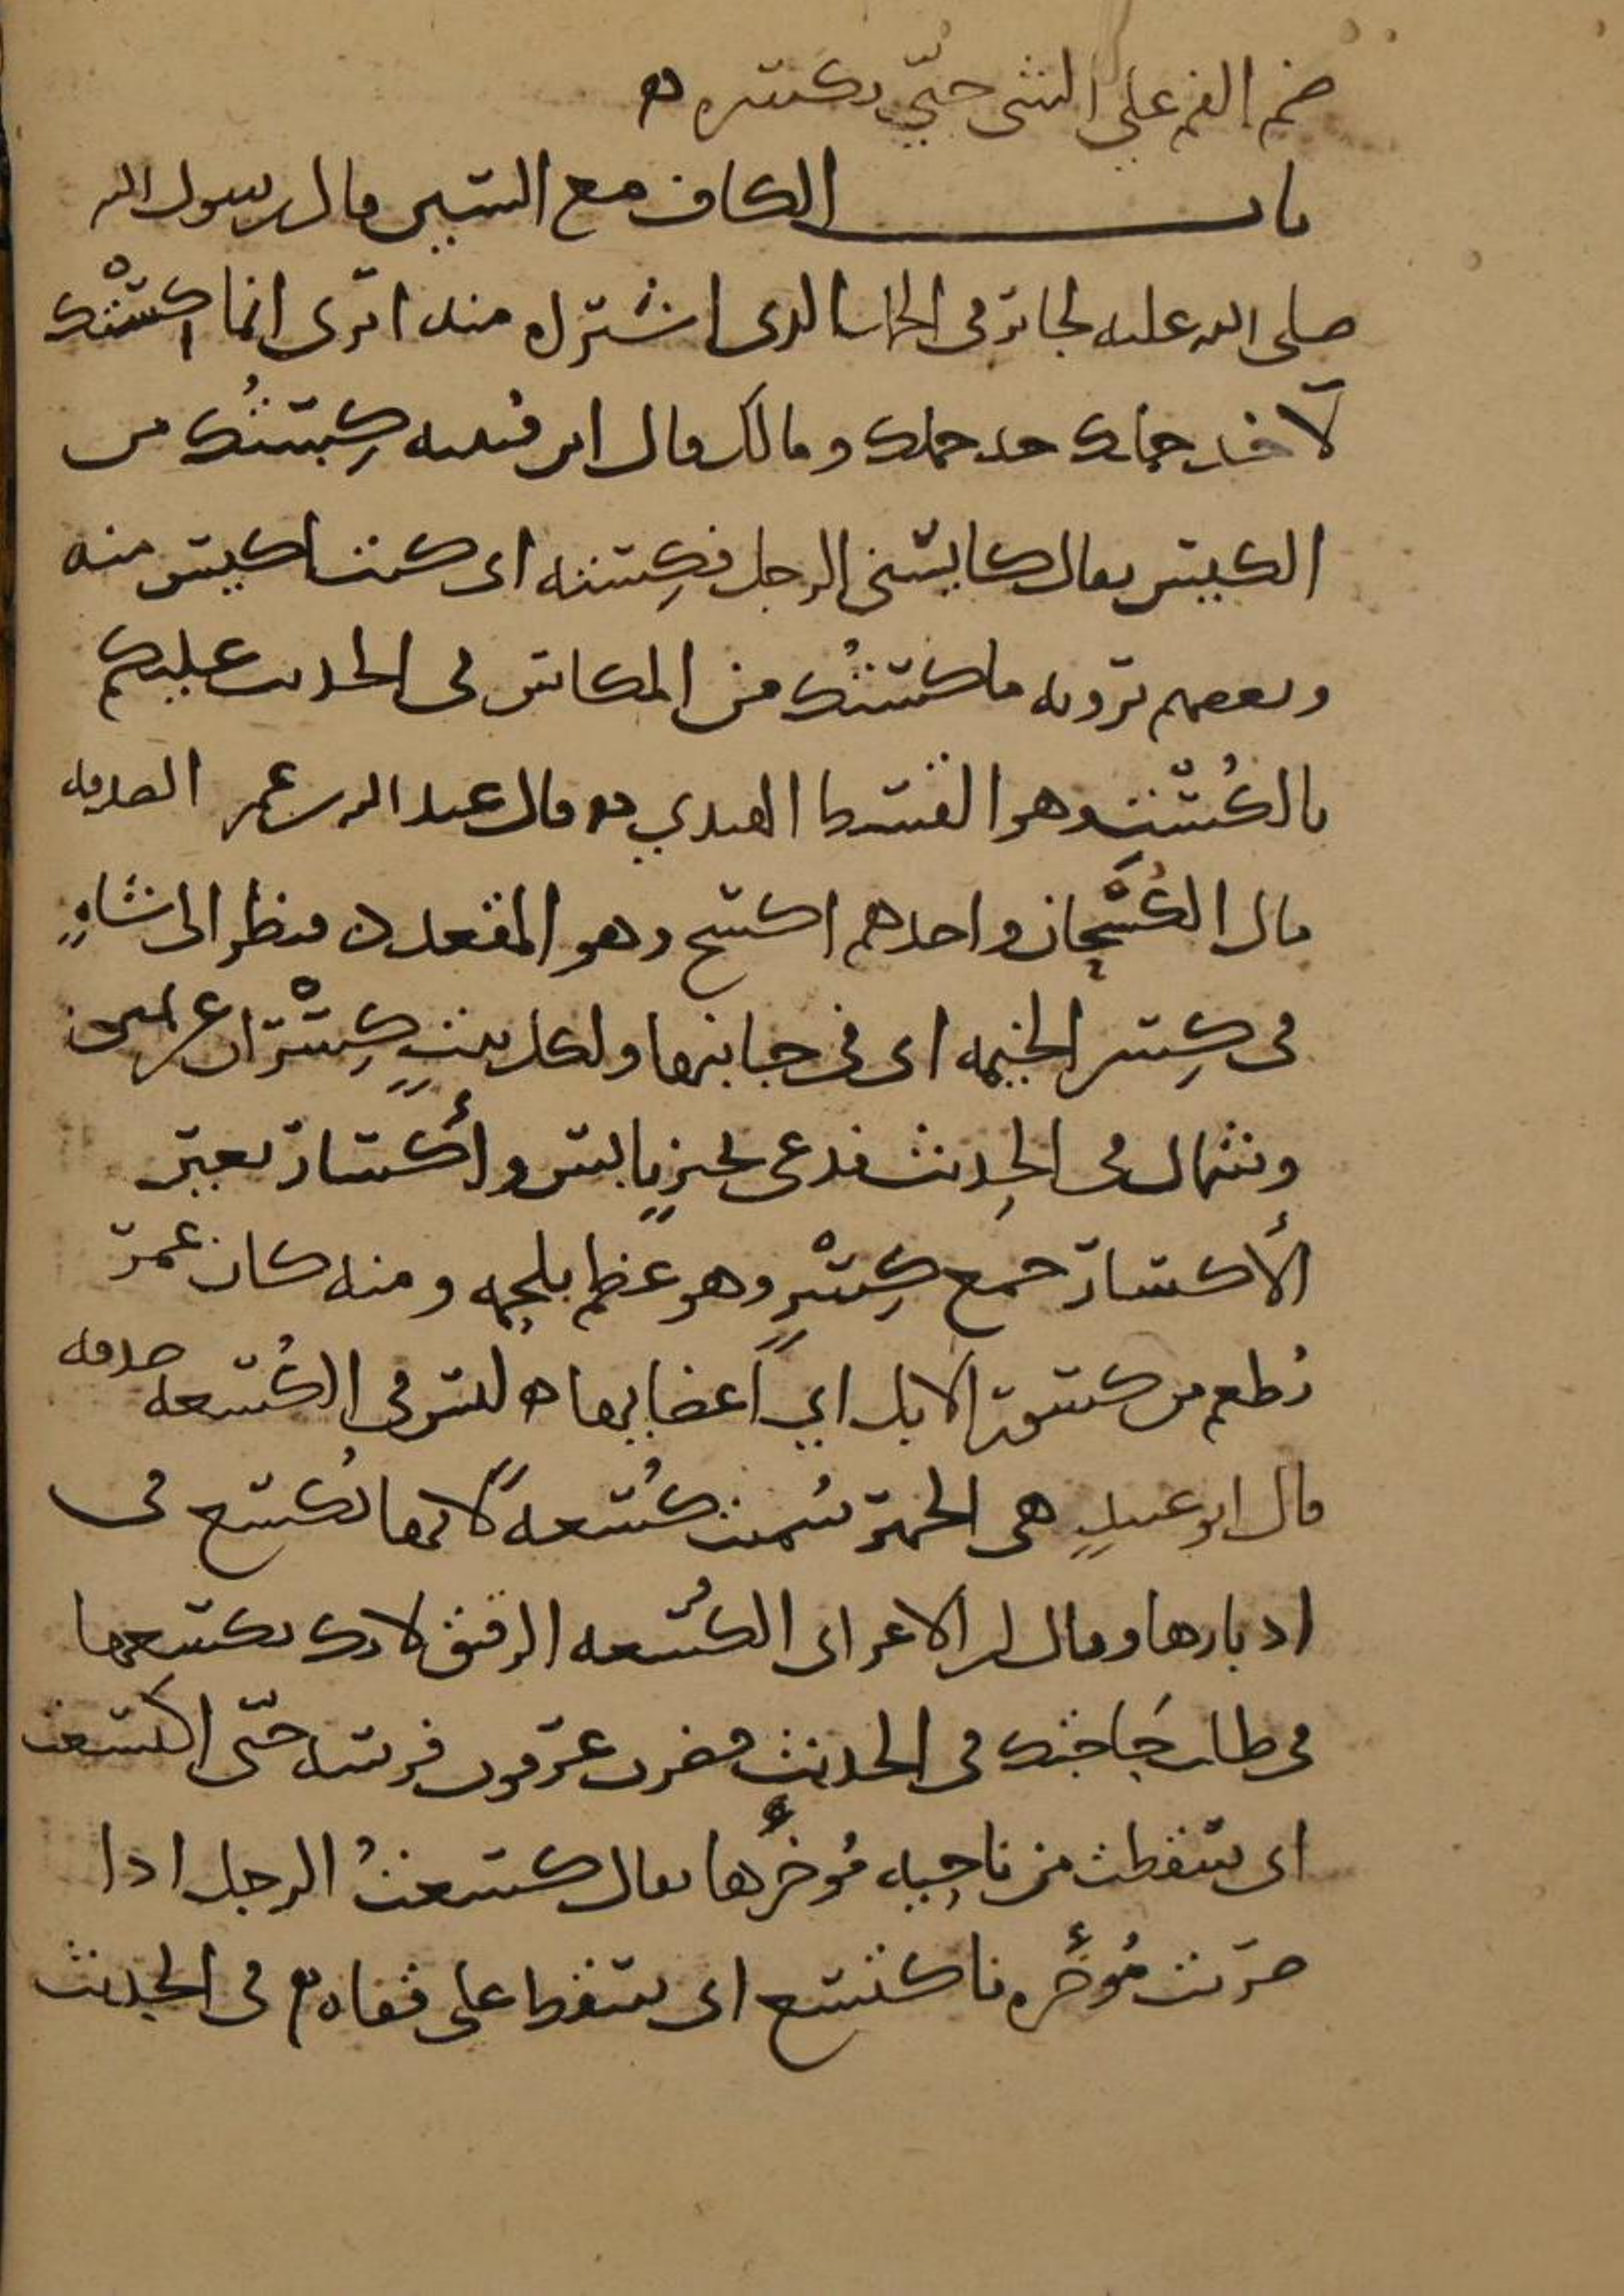 ضم الفم على الشي حتى يكسره ه
باب الكاف مع السين قال رسول الله
صلى الله عليه لجابر في الجمل الذي اشتراه منه اترى انما كستك
لآخذ جملك خذ جملك ومالك قال ابن قتيبه كِستُك من
الكيس يقال كايسني الرجل فكِسته اي كنت اكيس منه
وبعضهم يرويه ماكستك من المكاس في الحديث عليكم
بالكُست وهو القسط الهندي ه قال عبد الله بن عمر الصدقه
مال الكُسْحان واحدهم اكسح وهو المقعد ه فنظر الى شاةٍ
في كِسر الخيمه اي في جانبها ولكل بيتٍ كِسْران عن يمين
وشمال في الحديث فدعى بخبزٍ يابس وأكسار بعير
الأكسار جمع كِسْرٍ وهو عظم بلحمه ومنه كان عمر
يُطعم من كسور الابل اي اعضايها ه ليس في الكُسعه صدقه
قال ابو عبيدٍ هي الحمير سُميت كُسعةً لانها تُكسع في
ادبارها وقال ابن الاعرابي الكُسعه الرقيق لانك تكسعها
في طلب حَاجتك في الحديث فضرب عرقوب فرسه حتّى اكتسعت
اي سقطت من ناحيه مُؤخرها يقال كسعتُ الرجل اذا
ضربت مُؤخره فاكتسع اي سقط على قفاه ه في الحديث